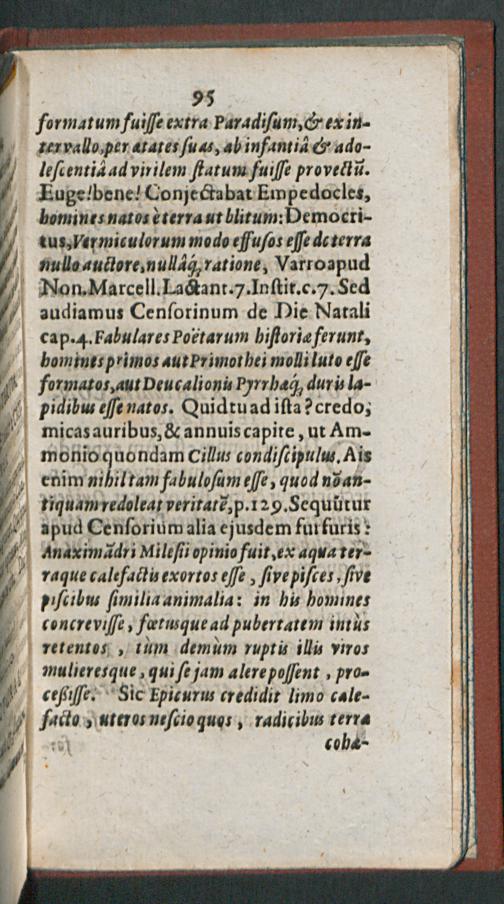 95
formatum fuiſſe extra Paradiſum, & ex in-
tervallo, per ætates ſuas, ab infantiâ & ado-
leſcentiâ ad virilem ſtatum fuiſſe provectũ.
Euge! bene! Conjectabat Empedocles,
homines natos è terra ut blitum: Democri-
tus, Vermiculorum modo effuſos eſſe de terra
nullo auctore, nullâq́, ratione, Varro apud
Non. Marcell. Lactant. 7. Inſtit. c. 7. Sed
audiamus Cenſorinum de Die Natali
cap. 4. Fabulares Poëtarum hiſtoriæ ferunt,
homines primos aut Primothei molli luto eſſe
formatos, aut Deucalionis Pyrrhæq́, duris la-
pidibus eſſe natos. Quid tu ad iſta? credo,
micas auribus, & annuis capite, ut Am-
monio quondam Cillus condiſcipulus, Ais
enim nihil tam fabuloſum eſſe, quod nõ an-
tiquam redoleat veritatẽ, p. 129. Sequũtur
apud Cenſorium alia ejusdem furfuris:
Anaximãdri Mileſii opinio fuit, ex aqua ter-
raque calefactis exortos eſſe, ſive piſces, ſive
piſcibus ſimilia animalia: in his homines
concreviſſe, fœtusque ad pubertatem intùs
retentos, tùm demùm ruptis illis viros
mulieresque, qui ſe jam alere poſſent, pro-
ceßiſſe. Sic Epicurus credidit limo cale-
facto, uteros neſcio quos, radicibus terræ
cohæ-